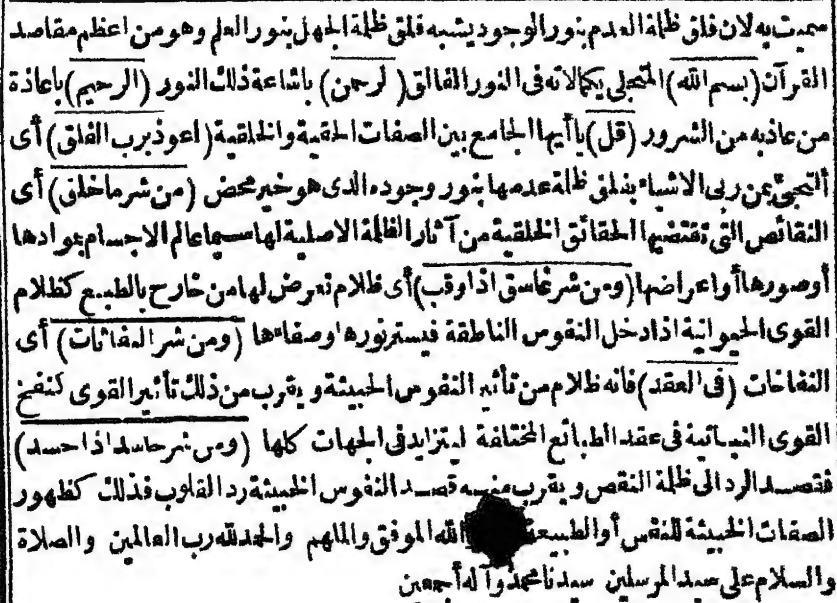 سميت به لان فلق ظلمة العدم بنور الوجود يشبه فلق ظلمة الجهل بنور العلم وهو من اعظم مقاصد
القرآن (بسم الله) المتجلى بكمالاته فى النور الفالق (لرحمن) باشاعة ذلك النور (الرحيم) باعاذة
من عاذ به من الشرور (قل) يا أيها الجامع بين الصفات الحقية والخلقية (اعوذ برب الفلق) أى
ألتجئ بمن ربى الاشياء بفلق ظلمة عدمها بنور وجوده الذى هو خير محض (من شر ما خلق) أى
النقائص التى تقتضيها الحقائق الخلقية من آثار الظلمة الاصلية لها سيما عالم الاجسام بموادها
أوصورها أواعراضها (ومن شر غاسق اذا وقب) أى ظلام تعرض لها من خارح بالطبع كظلام
القوى الحيوانية اذا دخل النفوس الناطقة فيستر نورها وصفاءها (ومن شر النفاثات) أى
النفاخات (فى العقد) فانه ظلام من تأثير النفوس الخبيثة و يقرب من ذلك تأثير القوى كنفخ
القوى النباتية فى عقد الطبائع المختلفة ليتزايد فى الجهات كلها (ومن شر حاسد اذا حسد)
فقصد الرد الى ظلمة النقص و يقرب منه قصد النفوس الخبيثة رد القلوب فذلك كظهور
الصفات الخبيثة للنفس أو الطبيعة الله الموفق والملهم والحمد لله رب العالمين والصلاة
والسلام على سيد المرسلين سيدنا محمد وآله أجمعين